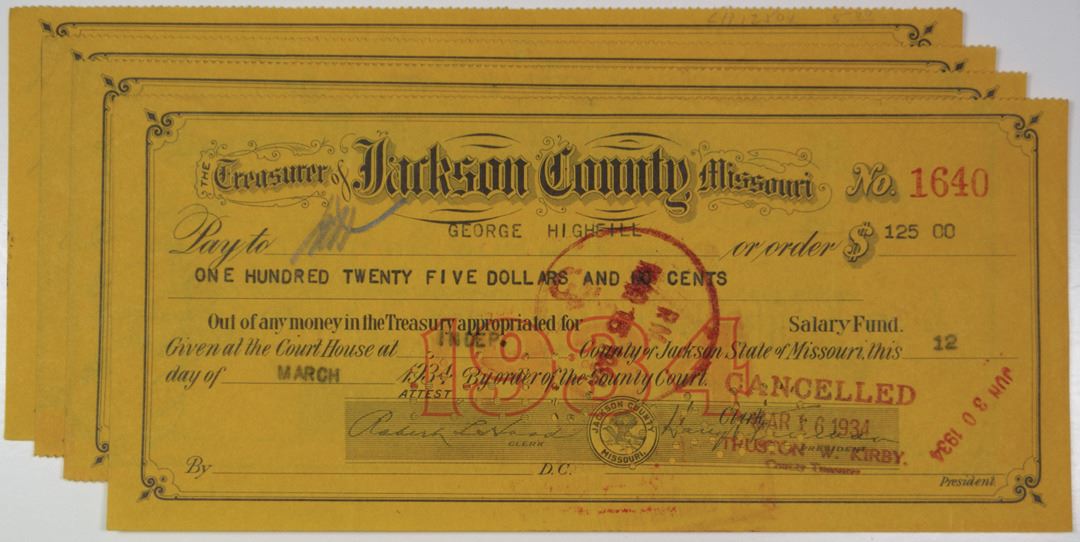 THE Treasurer of Jackson County Missouri No. 1640
Pay to GEORGE HIGHFILL or order $ 125 00
ONE HUNDRED TWENTY FIVE DOLLARS AND 00 CENTS
Out of any money in the Treasury appropriated for Salary Fund.
Given at the Court House at INDEP. County of Jackson State of Missouri, this 12
day of MARCH 1934 By order of the County Court.
1934
ATTEST
CANCELLED
Clerk
MAR 16 1934
JUN 30 1934
JACKSON COUNTY
MISSOURI.
CLERK
PRESIDENT
THUSTON W. KIRBY.
County Treasurer
By D.C. President